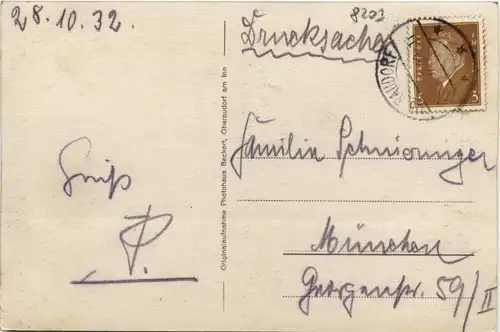 28.10.32.
8203
Drucksache
Gruß
P.
Originalaufnahme Photohaus Beckert, Oberaudorf am Inn
Familie
München
Georgenstr. 59/II